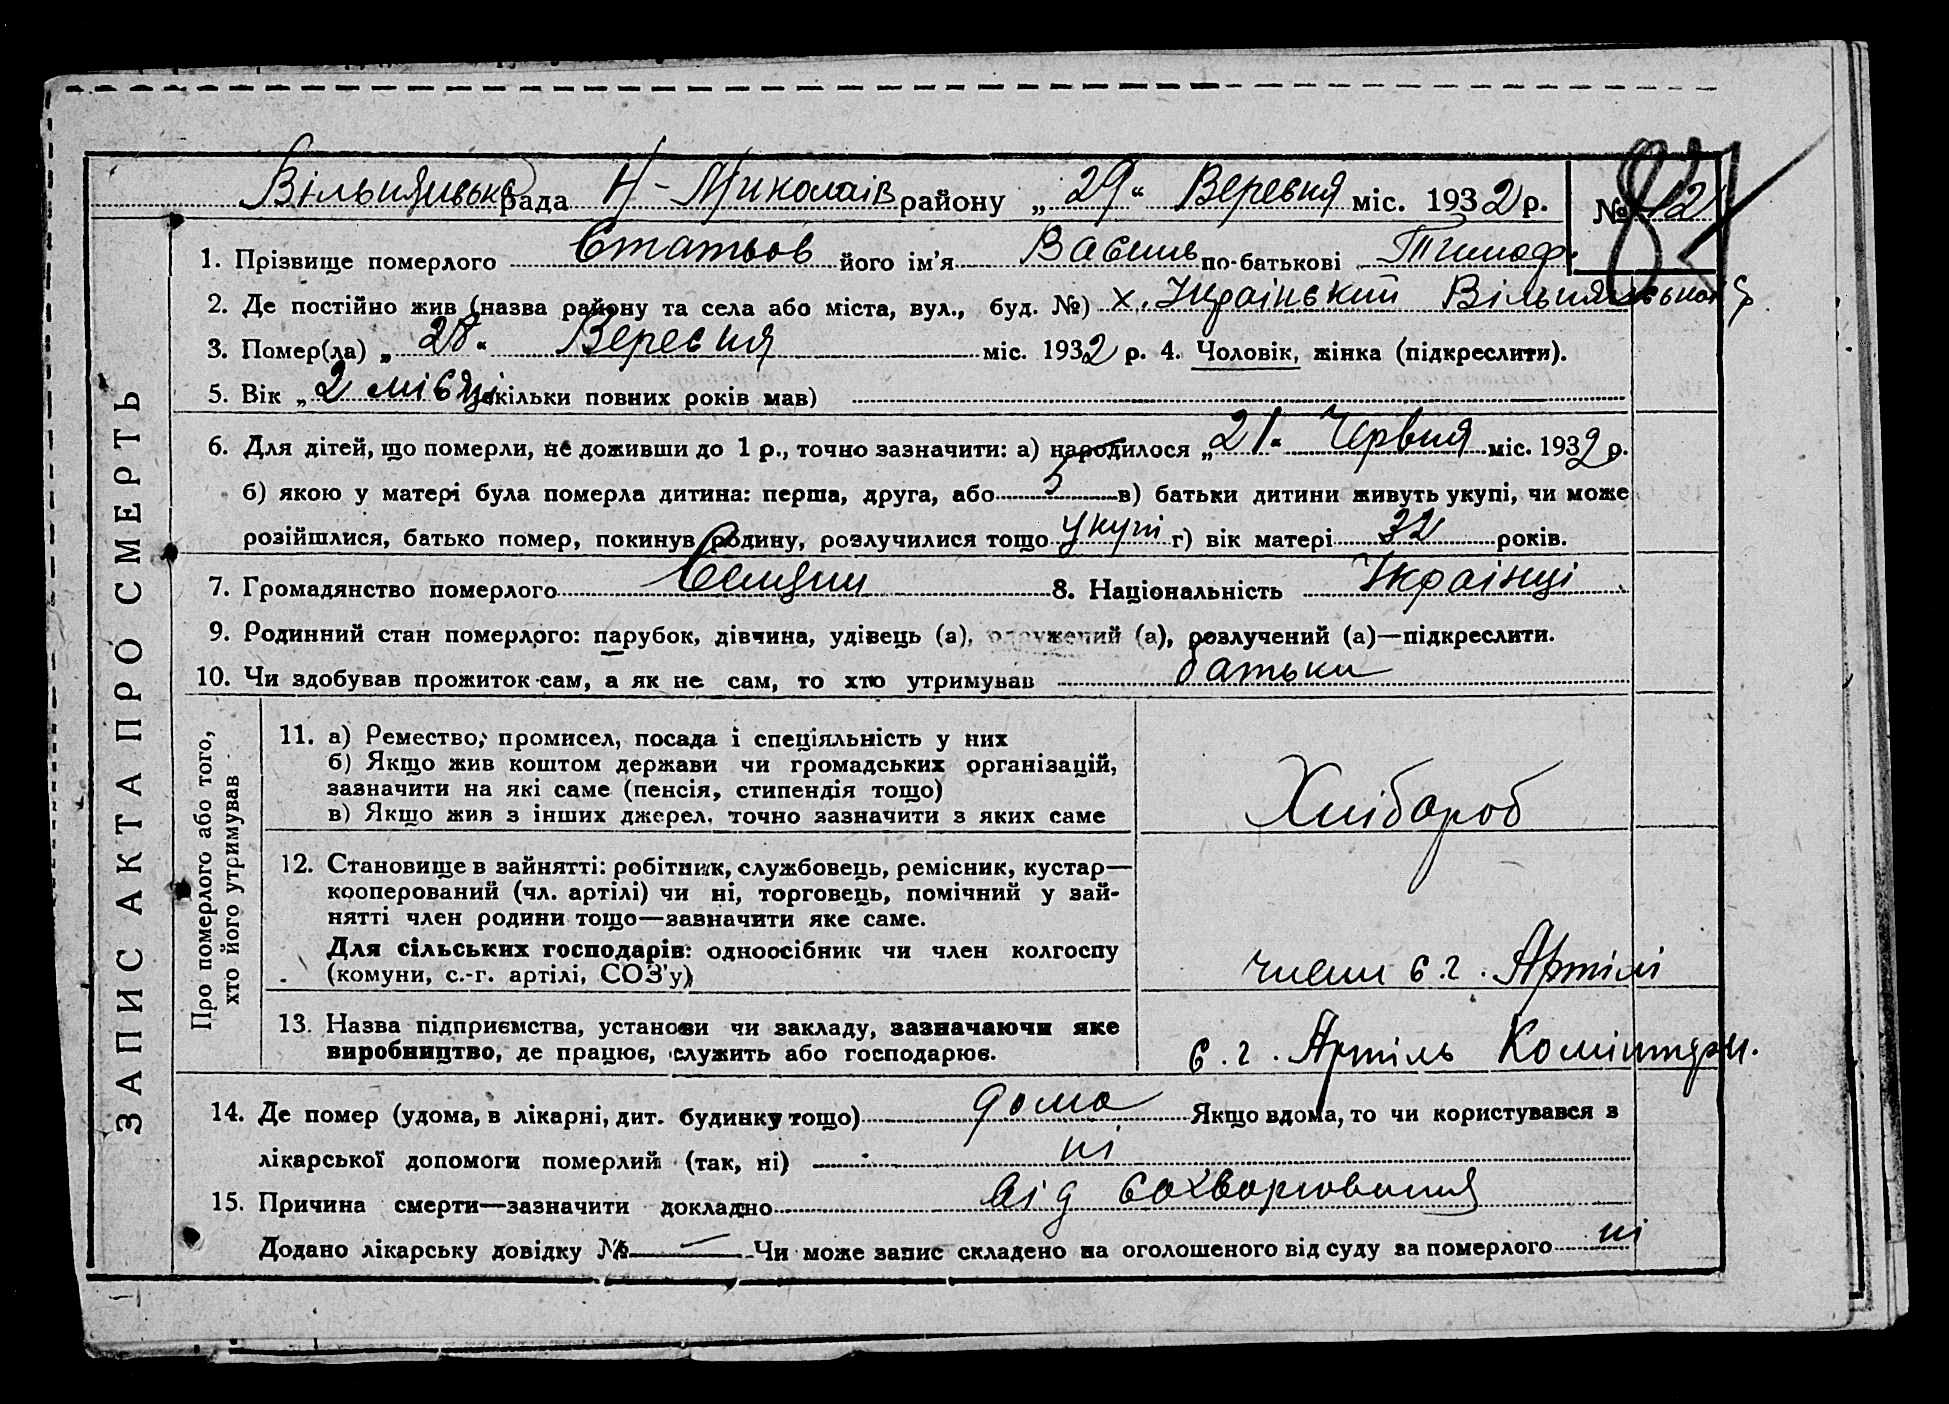 Вільнянська рада Н-Миколаів району „29“ Вересня міс. 1932 р. № 12
84
1. Прізвище померлого Статьов його ім'я Василь по-батькові Тимоф.
2. Де постійно жив (назва району та села або міста, вул., буд. №) х. Украінський Вільнянської
3. Помер(ла) „28“ Вересня міс. 1932 р. 4. Чоловік, жінка (підкреслити).
5. Вік „2 місяці (скільки повних років мав)
6. Для дітей, що померли, не доживши до 1 р., точно зазначити: а) народилося „21“ Червня міс. 1932 р.
б) якою у матері була померла дитина: перша, друга, або 5 в) батьки дитини живуть укупі, чи може
розійшлися, батько помер, покинув родину, розлучилися тощо укупі г) вік матері 32 років.
7. Громадянство померлого Селяни 8. Національність Украінці
9. Родинний стан померлого: парубок, дівчина, удівець (а), одружений (а), розлучений (а)—підкреслити.
10. Чи здобував прожиток сам, а як не сам, то хто утримував батьки
ЗАПИС АКТА ПРО СМЕРТЬ
Про померлого або того,
хто його утримував
11. а) Ремество, промисел, посада і спеціяльність у них
б) Якщо жив коштом держави чи громадських організацій,
зазначити на які саме (пенсія, стипендія тощо)
в) Якщо жив з інших джерел, точно зазначити з яких саме
Хлібороб
12. Становище в зайнятті: робітник, службовець, ремісник, кустар—
кооперований (чл. артілі) чи ні, торговець, помічний у зай-
нятті член родини тощо—зазначити яке саме.
Для сільських господарів: одноосібник чи член колгоспу
(комуни, с.-г. артілі, СОЗ'у)
член с.г. Артілі
13. Назва підприємства, установи чи закладу, зазначаючи яке
виробництво, де працює, служить або господарює.
с.г. Артіль Комінтерн.
14. Де помер (удома, в лікарні, дит. будинку тощо) дома Якщо вдома, то чи користувався з
лікарської допомоги померлий (так, ні) ні
15. Причина смерти—зазначити докладно від захворювання
Додано лікарську довідку № — Чи може запис складено на оголошеного від суду за померлого ні